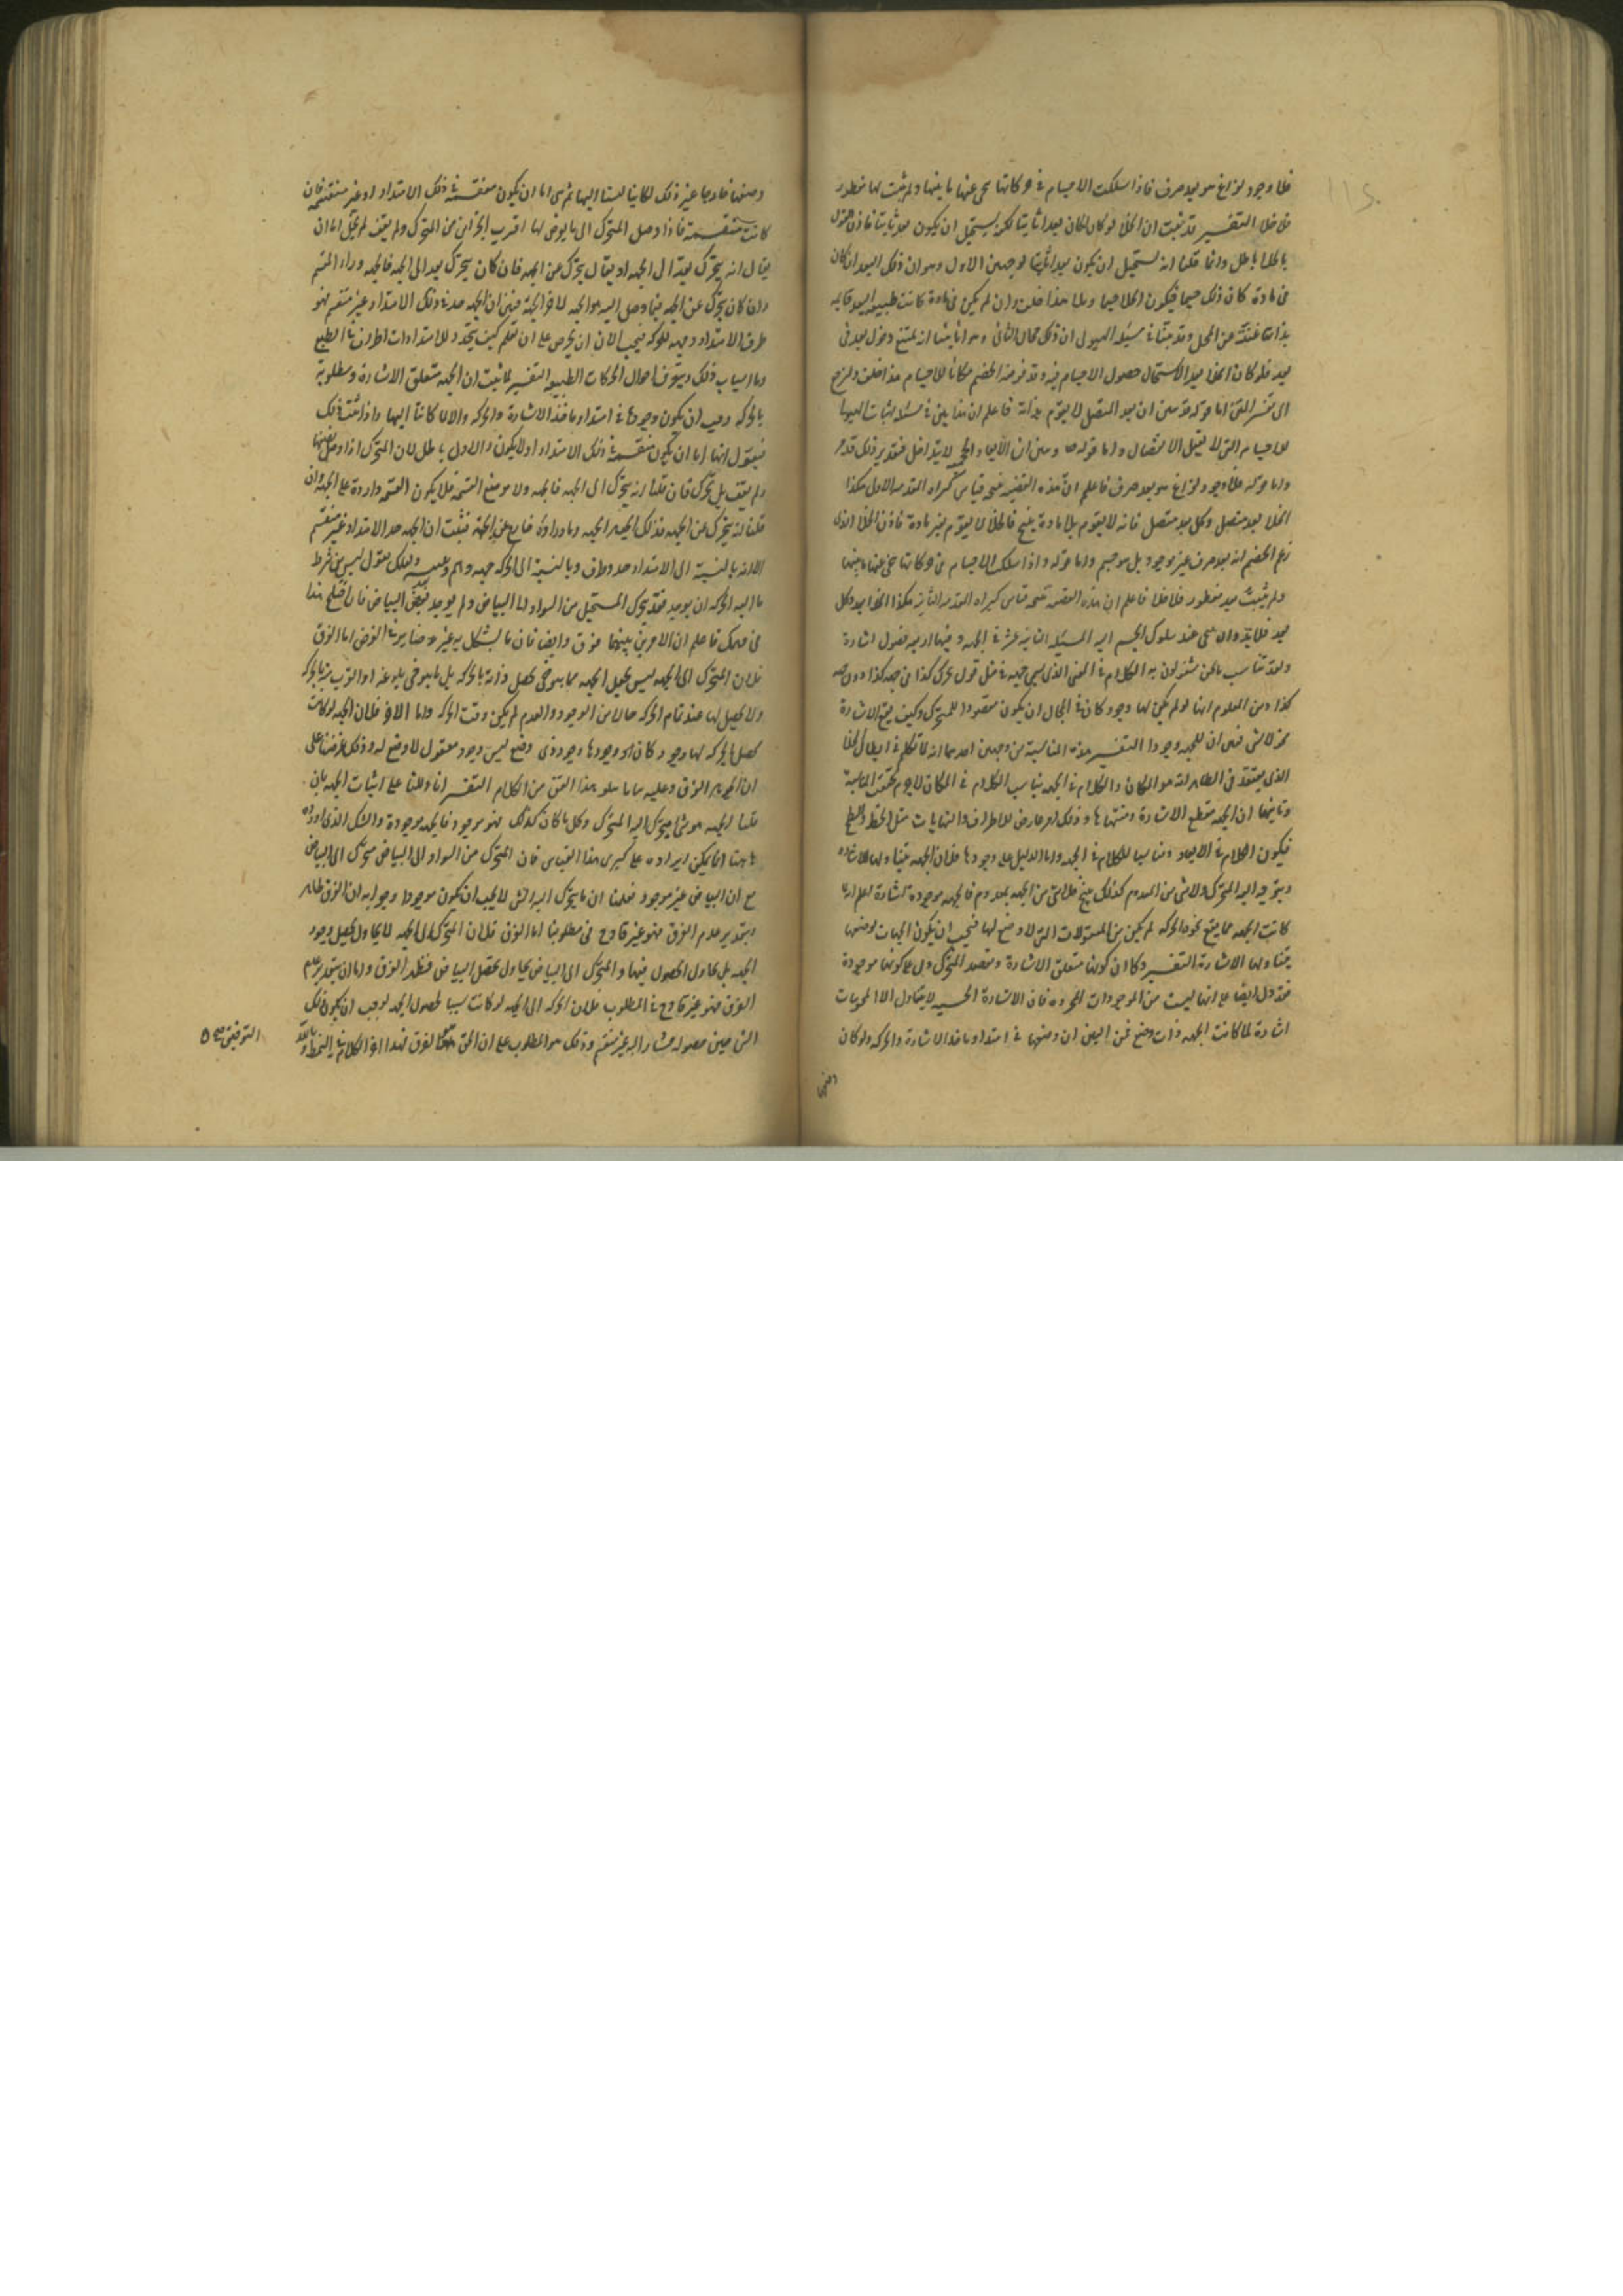 فلا وجود لفراغ هو بعد صرف فاذا سلكت الاجسام فى حركاتها تنحى عنها ما بينها ولم يثبت لها مفطور
فلا خلا التفسير قد ثبت ان الخلا لو كان لكان بعدا ثابتا لكن يستحيل ان يكون بعدا ثابتا فاذن القول
بالخلا باطل وانما قلنا انه يستحيل ان يكون بعدا ثابتا لوجهين الاول وهو ان ذلك البعد ان كان
فى مادة كان ذلك جسما فيكون الخلا جسما وملا هذا خلف وان لم يكن فى مادة كانت طبيعة البعد قائمة
بذاتها غنية عن المحل وقد بينا فى مسئلة الهيولى ان ذلك محال الثانى وهو انا بينا انه يمتنع دخول بعد فى
بعد فلو كان الخلا بعدا لاستحال حصول الاجسام فيه وقد فرضه الخصم مكانا للاجسام هذا خلف ولنرجع
الى تفسير المتن اما قوله قد تبين ان البعد المتصل لا يقوم بذاته فاعلم ان هذا بين فى مسئلة اثبات الهيولى
للاجسام التى لا تقبل الانفصال واما قوله وتبين ان الابعاد الحجمية لا يتداخل فتقدير ذلك قد مر
واما قوله فلا وجود لفراغ هو بعد صرف فاعلم ان هذه القضية نتيجة قياس كبراه المقدمة الاولى هكذا
الخلا بعد متصل وكل بعد متصل فانه لا يقوم بلا مادة ينتج فالخلا لا يقوم بغير مادة فاذن الخلا الذى
زعم الخصم انه بعد صرف غير موجود بل هو جسم واما قوله واذا سلكت الاجسام فى حركاتها تنحى عنها ما بينها
ولم يثبت لها بعد مفطور فلا خلا فاعلم ان هذه القضية نتيجة قياس كبراه المقدمة الثانية هكذا الخلا بعد وكل
بعد فلا بد وان يتنحى عند سلوك الجسم اليه المسئلة الثانية عشر فى الجهة وفيها اربعة فصول اشارة
ولقد تناسب ما نحن مشغولون به الكلام فى المعنى الذى يسمى جهة فى مثل قول تحرك كذا فى جهة كذا دون جهة
كذا ومن المعلوم انها لو لم يكن لها وجود كان فى المحال ان يكون مقصودا للمتحرك وكيف يقع الاشارة
نحو لا شى فتبين ان للجهة وجودا التفسير هذه المناسبة من وجهين احدهما انه لما تكلم فى ابطال الخلا
الذى يعتقد فى الظاهر انه هو المكان والكلام فى الجهة يناسب الكلام فى المكان لا جرم تحققت المناسبة
وثانيهما ان الجهة مقطع الاشارة ومنتهاها وذلك امر عارض للاطراف والنهايات مثل الخط والسطح
فيكون الكلام فى الابعاد مناسبا للكلام فى الجهة واما الدليل على وجودها فلان الجهة يتناولها الاشارة
ويتوجه اليه المتحرك ولا شى من المعدوم كذلك ينتج فلا شى من الجهة بمعدوم فالجهة موجودة اشارة اعلم انه لما
كانت الجهة مما يقع نحوه الحركة لم يكن من المعقولات التى لا وضع لها فيجب ان يكون الجهات لوضعها
يتناولها الاشارة التفسير وكما ان كونها متعلق الاشارة ومقصد المتحرك دل على كونها موجودة
فقد دل ايضا على انها ليست من الموجودات المجردة فان الاشارة الحسية لا يتناول الا المحسوسات
اشارة لما كانت الجهة ذات وضع فمن البين ان وضعها فى امتداد ماخذ الاشارة والحركة ولو كان
وضعها
وضعها خارجا غير ذلك لكانتا ليستا اليها ثم هى اما ان يكون منقسمة فى ذلك الامتداد او غير منقسمة فان
كانت منقسمة فاذا وصل المتحرك الى ما يفرض لها اقرب الجزاين من المتحرك ولم يقف لم يخل اما ان
يقال انه يتحرك بعد الى الجهة او يقال يتحرك من الجهة فان كان يتحرك بعد الى الجهة فالجهة وراء المنقسم
وان كان يتحرك عن الجهة فما وصل اليه هو الجهة لا جزء الجهة فتبين ان الجهة حد فى ذلك الامتداد غير منقسم فهو
طرف الامتداد وجهة للحركة فيجب الان ان تحرص على ان تعلم كيف يتحدد للامتدادات اطراف فى الطبع
وما اسباب ذلك ويتعرف احوال الحركات الطبيعية التفسير لما ثبت ان الجهة متعلق الاشارة ومطلوبة
بالحركة وجب ان يكون وجودها فى امتداد ماخذ الاشارة والحركة والا لما كانتا اليها واذا ثبت ذلك
فنقول انها اما ان يكون منقسمة فى ذلك الامتداد او لا يكون والاول باطل لان المتحرك اذا وصل نصفها
ولم يقف بل تحرك فان قلنا انه يتحرك الى الجهة فالجهة وراء موضع القسمة فلا يكون القسمة واردة على الجهة وان
قلنا انه يتحرك عن الجهة فذلك الحد هو الجهة وما وراءه خارج عن الجهة فثبت ان الجهة حد الامتداد غير منقسم
الا انه بالنسبة الى الامتداد حد وطرف وبالنسبة الى الحركة جهة وهم وتنبيه ولعلك تقول ليس من شرط
ما اليه الحركة ان يوجد فقد يتحرك المستحيل من السواد الى البياض ولم يوجد بعد البياض فان اختلج هذا
فى وهمك فاعلم ان الامرين بينهما فرق وايضا فان ما يشكل به غير ضاير فى الغرض اما الفرق
فلان المتحرك الى الجهة ليس يجعل الجهة مما يتوخى تحصل ذاته بالحركة بل مما يتوخى بلوغه او القرب منه بالحركة
ولا يجعل لها عند تمام الحركة حالا من الوجود والعدم لم يكن وقت الحركة واما الاخر فلان الجهة لو كانت
تحصل بالحركة لها وجود كان وجودها وجود ذى وضع ليس وجود معقول لا وضع له وذلك غرضنا على
ان الحق هو الفرق وعليه بناء ما يتلو هذا الفن من الكلام التفسير انا دللنا على اثبات الجهة بان
قلنا الجهة هو شى يتحرك اليه المتحرك وكل ما كان كذلك فهو موجود فالجهة موجودة والشك الذى اورده
هاهنا انما يمكن ايراده على كبرى هذا القياس فان المتحرك من السواد الى البياض متحرك الى البياض
مع ان البياض غير موجود فعلمنا ان ما يتحرك اليه الشى لا يجب ان يكون موجودا وجوابه ان الفرق ظاهر
وبتقدير عدم الفرق فهو غير قادح فى مطلوبنا اما الفرق فلان المتحرك الى الجهة لا يحاول تحصيل وجود
الجهة بل يحاول الحصول فيها والمتحرك الى البياض يحاول تحصيل البياض فظهر الفرق واما ان بتقدير عدم
الفرق فهو غير قادح فى المطلوب فلان الحركة الى الجهة لو كانت سببا لحصول الجهة لوجب ان يكون ذلك
الشى حين حصوله مشارا اليه غير منقسم وذلك هو المطلوب على ان الحق هو الفرق فهذا اخر الكلام فى النمط وبالله
التوفيق